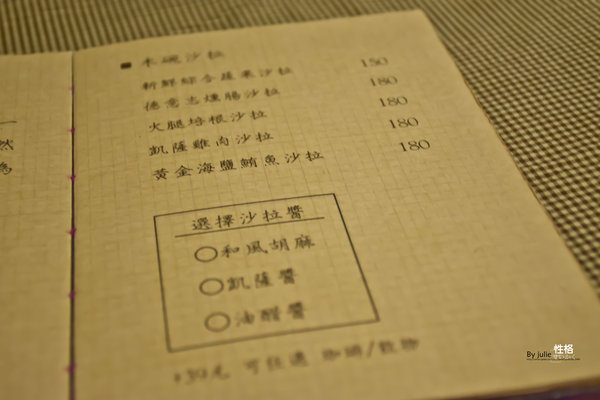 木碗沙拉
新鮮綜合蔬果沙拉 150
德意志燻腸沙拉 180
火腿培根沙拉 180
凱薩雞肉沙拉 180
黃金海鹽鮪魚沙拉 180
選擇沙拉醬
○和風胡麻
○凱薩醬
○油醋醬
+30元 可任選 咖啡/穀物
然
為
By julie 性格